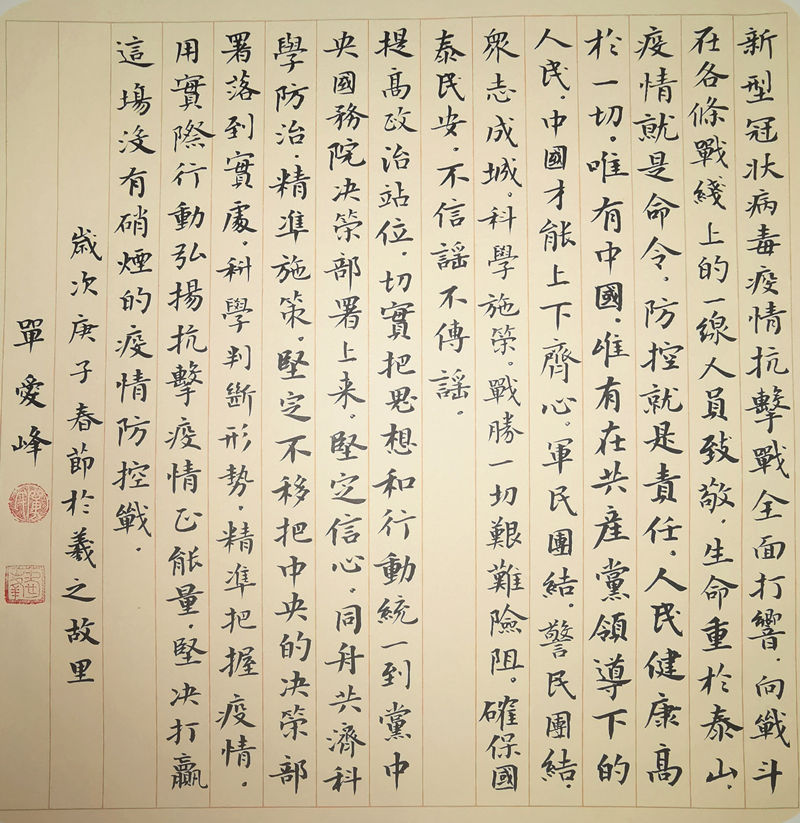 新型冠狀病毒疫情抗擊戰全面打響.向戰斗
在各條戰綫上的一線人員致敬.生命重於泰山.
疫情就是命令.防控就是責任.人民健康高
於一切.唯有中國.唯有在共産黨領導下的
人民.中國才能上下齊心.軍民團結.警民團結.
衆志成城.科學施策.戰勝一切艱難險阻.確保國
泰民安.不信謡不傳謡.
提高政治站位.切實把思想和行動統一到黨中
央國務院决策部署上来.堅定信心.同舟共濟科
學防治.精准施策.堅定不移把中央的决策部
署落到實處.科學判斷形勢.精準把握疫情.
用實際行動弘揚抗擊疫情正能量.堅决打贏
這場没有硝煙的疫情防控戰.
歲次庚子春節於羲之故里
單愛峰